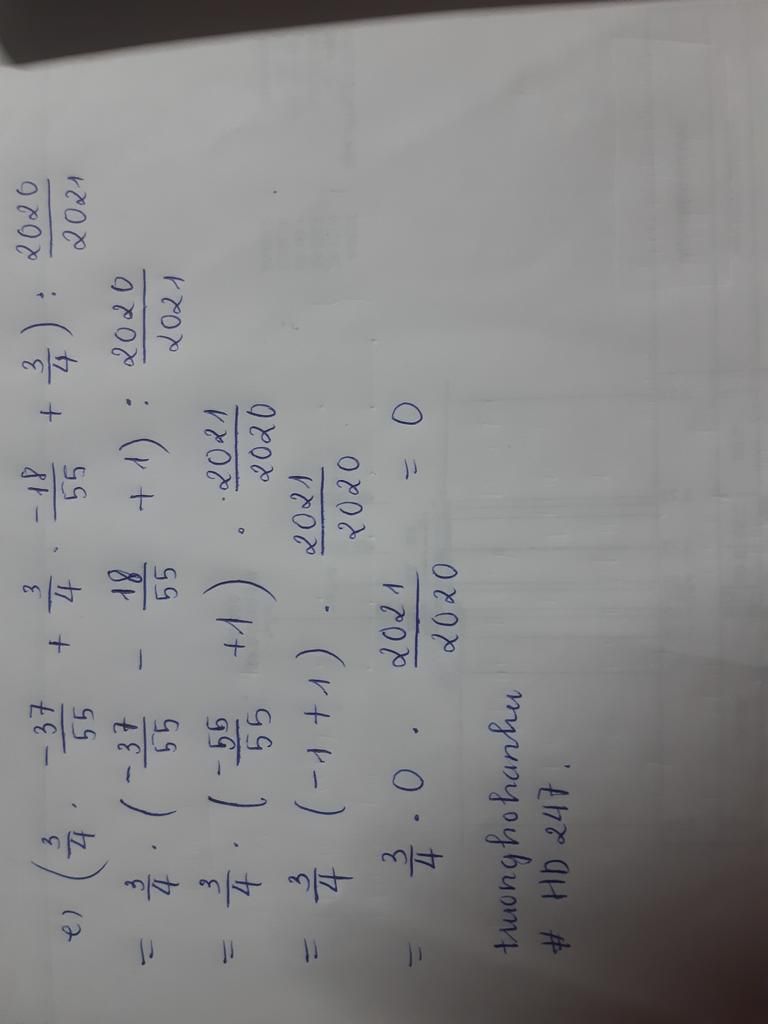 e) (3/4 . -37/55 + 3/4 . -18/55 + 3/4) : 2020/2021
= 3/4 . (-37/55 - 18/55 + 1) : 2020/2021
= 3/4 . (-55/55 + 1) . 2021/2020
= 3/4 (-1 + 1) . 2021/2020
= 3/4 . 0 . 2021/2020 = 0
truonghohanhu
# HD 247.